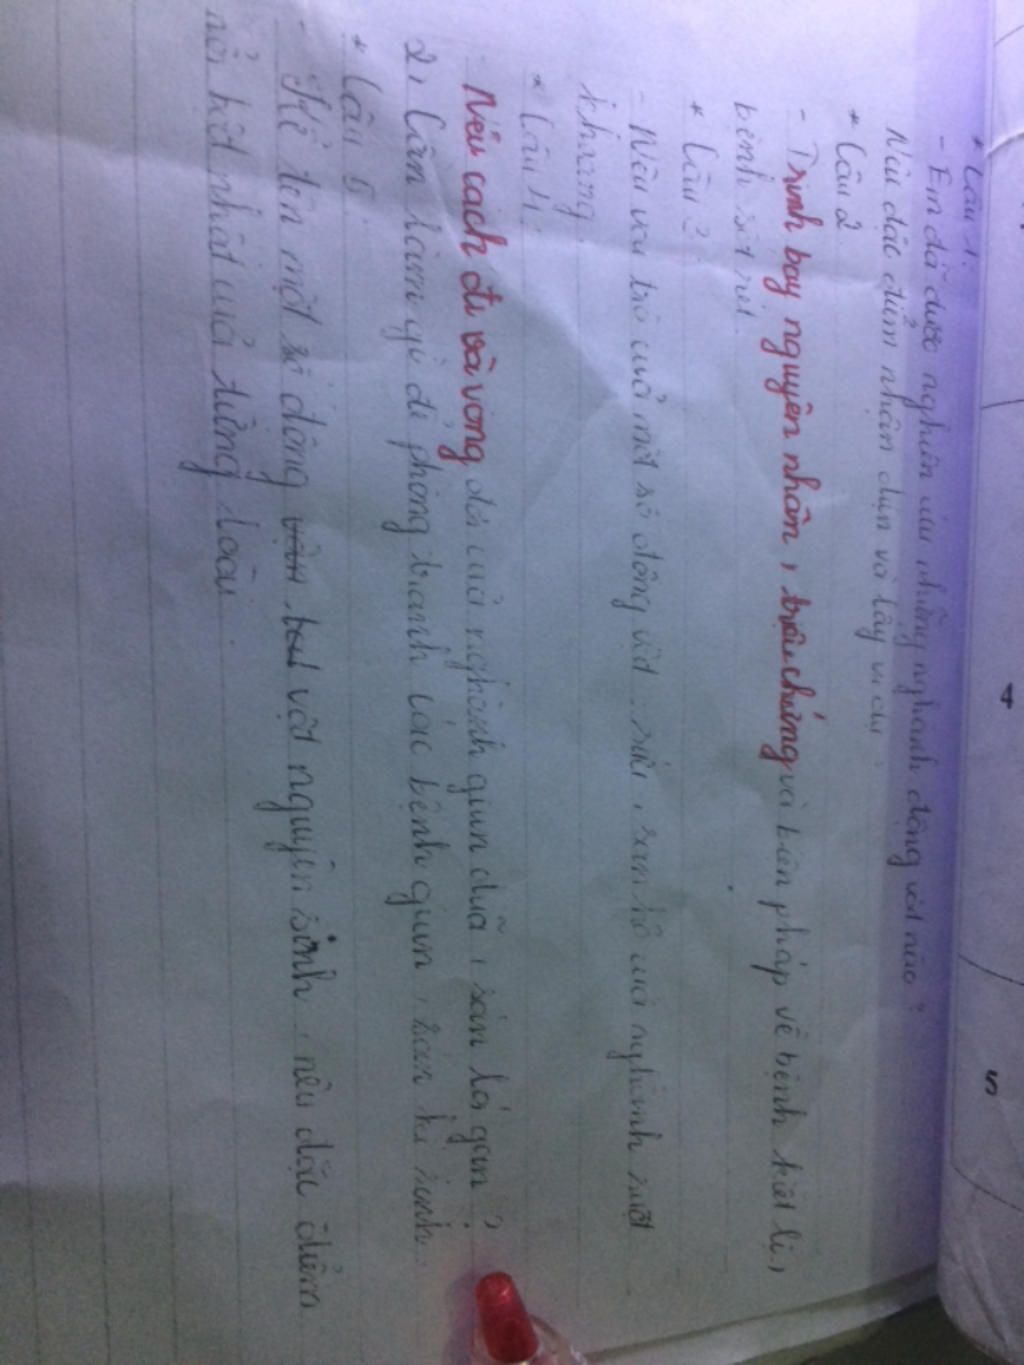 * Câu 1:
- Em đã được nghiên cứu những nghành động vật nào?
Nêu đặc điểm nhận dạn và lấy ví dụ
* Câu 2
- Trinh bay nguyên nhân, triêu chứng và biện pháp về bệnh kiết lị,
bệnh sốt rét.
* Câu 3:
- Nêu vai trò cuả một số động vật: sứa, san hô cuả nghành ruột
khoang.
* Câu 4:
Nêu cách đi và vòng đời cuả nghành giun đũa, sán lá gan?
2, Cần làm gì để phòng tranh các bệnh giun, sán kí sinh.
* Câu 5
- Kể tên một số động vật nguyên sinh, nêu đặc điểm
nổi bật nhất cuả từng loài.
4
5